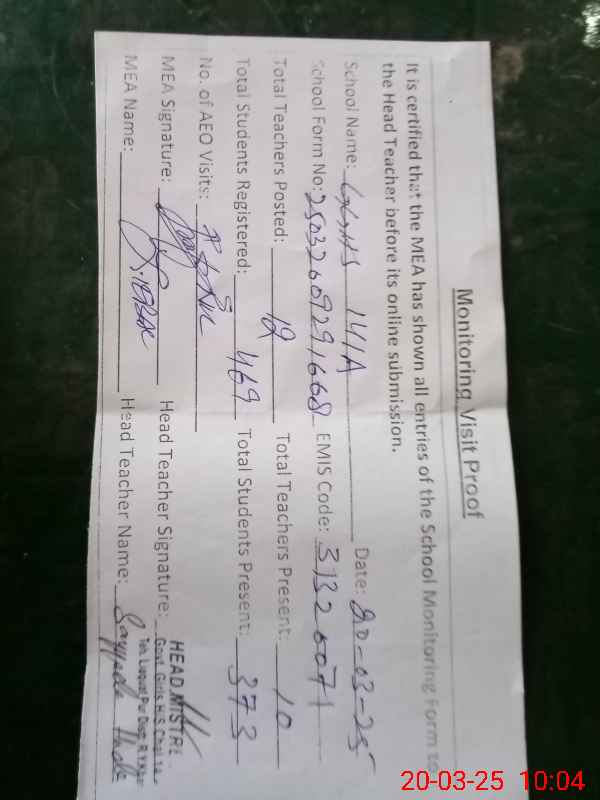 Monitoring Visit Proof
It is certified that the MEA has shown all entries of the School Monitoring Form to
the Head Teacher before its online submission.
School Name: GGHS 141A Date: 20-03-25
School Form No: 25032609291668 EMIS Code: 31320071
Total Teachers Posted: 12 Total Teachers Present: 10
Total Students Registered: 469 Total Students Present: 373
No. of AEO Visits:
MEA Signature: Head Teacher Signature:
HEAD MISTRE
Govt. Girls H.S Chak 14
Teh. Liaquat Pur Distt. R.Y.Khan
MEA Name: Head Teacher Name:
20-03-25 10:04